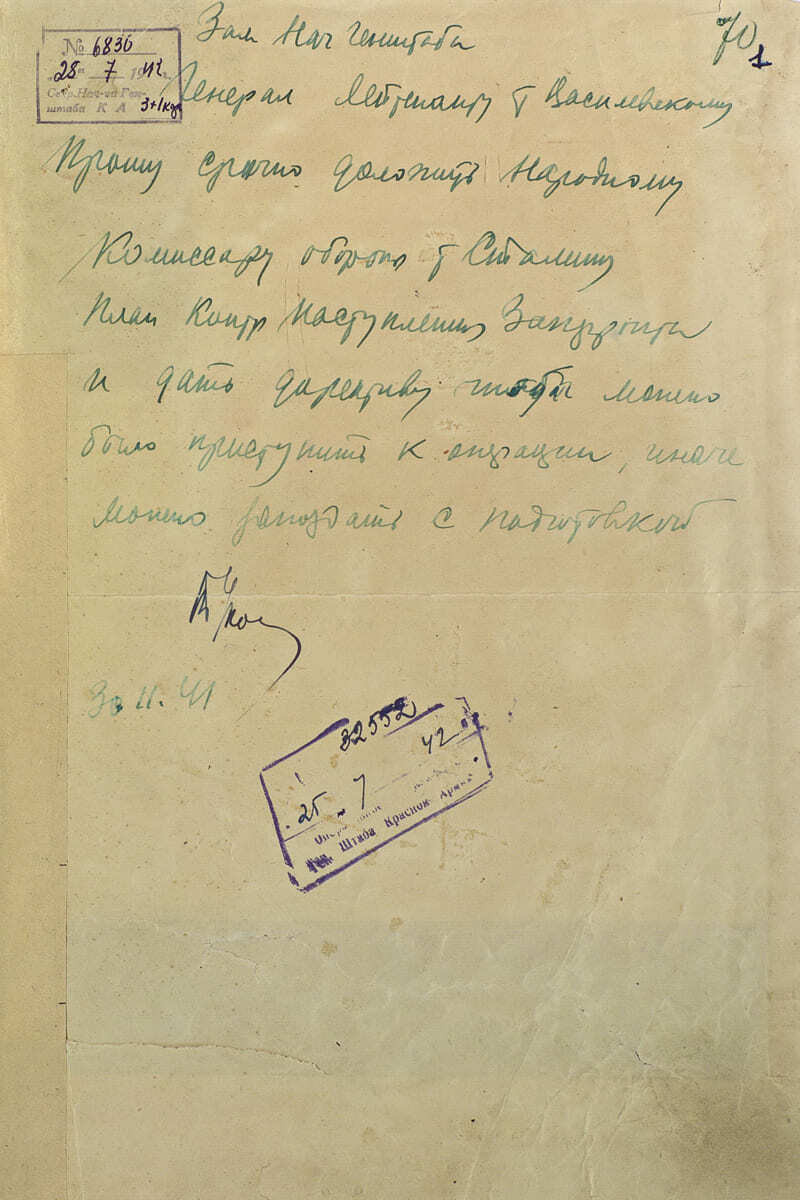 Зам Нач Генштаба
70
1
№ 6836
"28" 7 1942 г.
Секр. Нач-ка Ген-
штаба К А 3+1 кар
Генерал Лейтенанту т Василевскому
Прошу срочно доложить Народному
Комиссару обороны т Сталину
План контр наступления Запфронта
и дать директиву чтобы можно
было приступить к операции, иначе
можно запоздать с подготовкой
Жуков
30.11.41
32552
25 7 42
Штаба Красной Армии